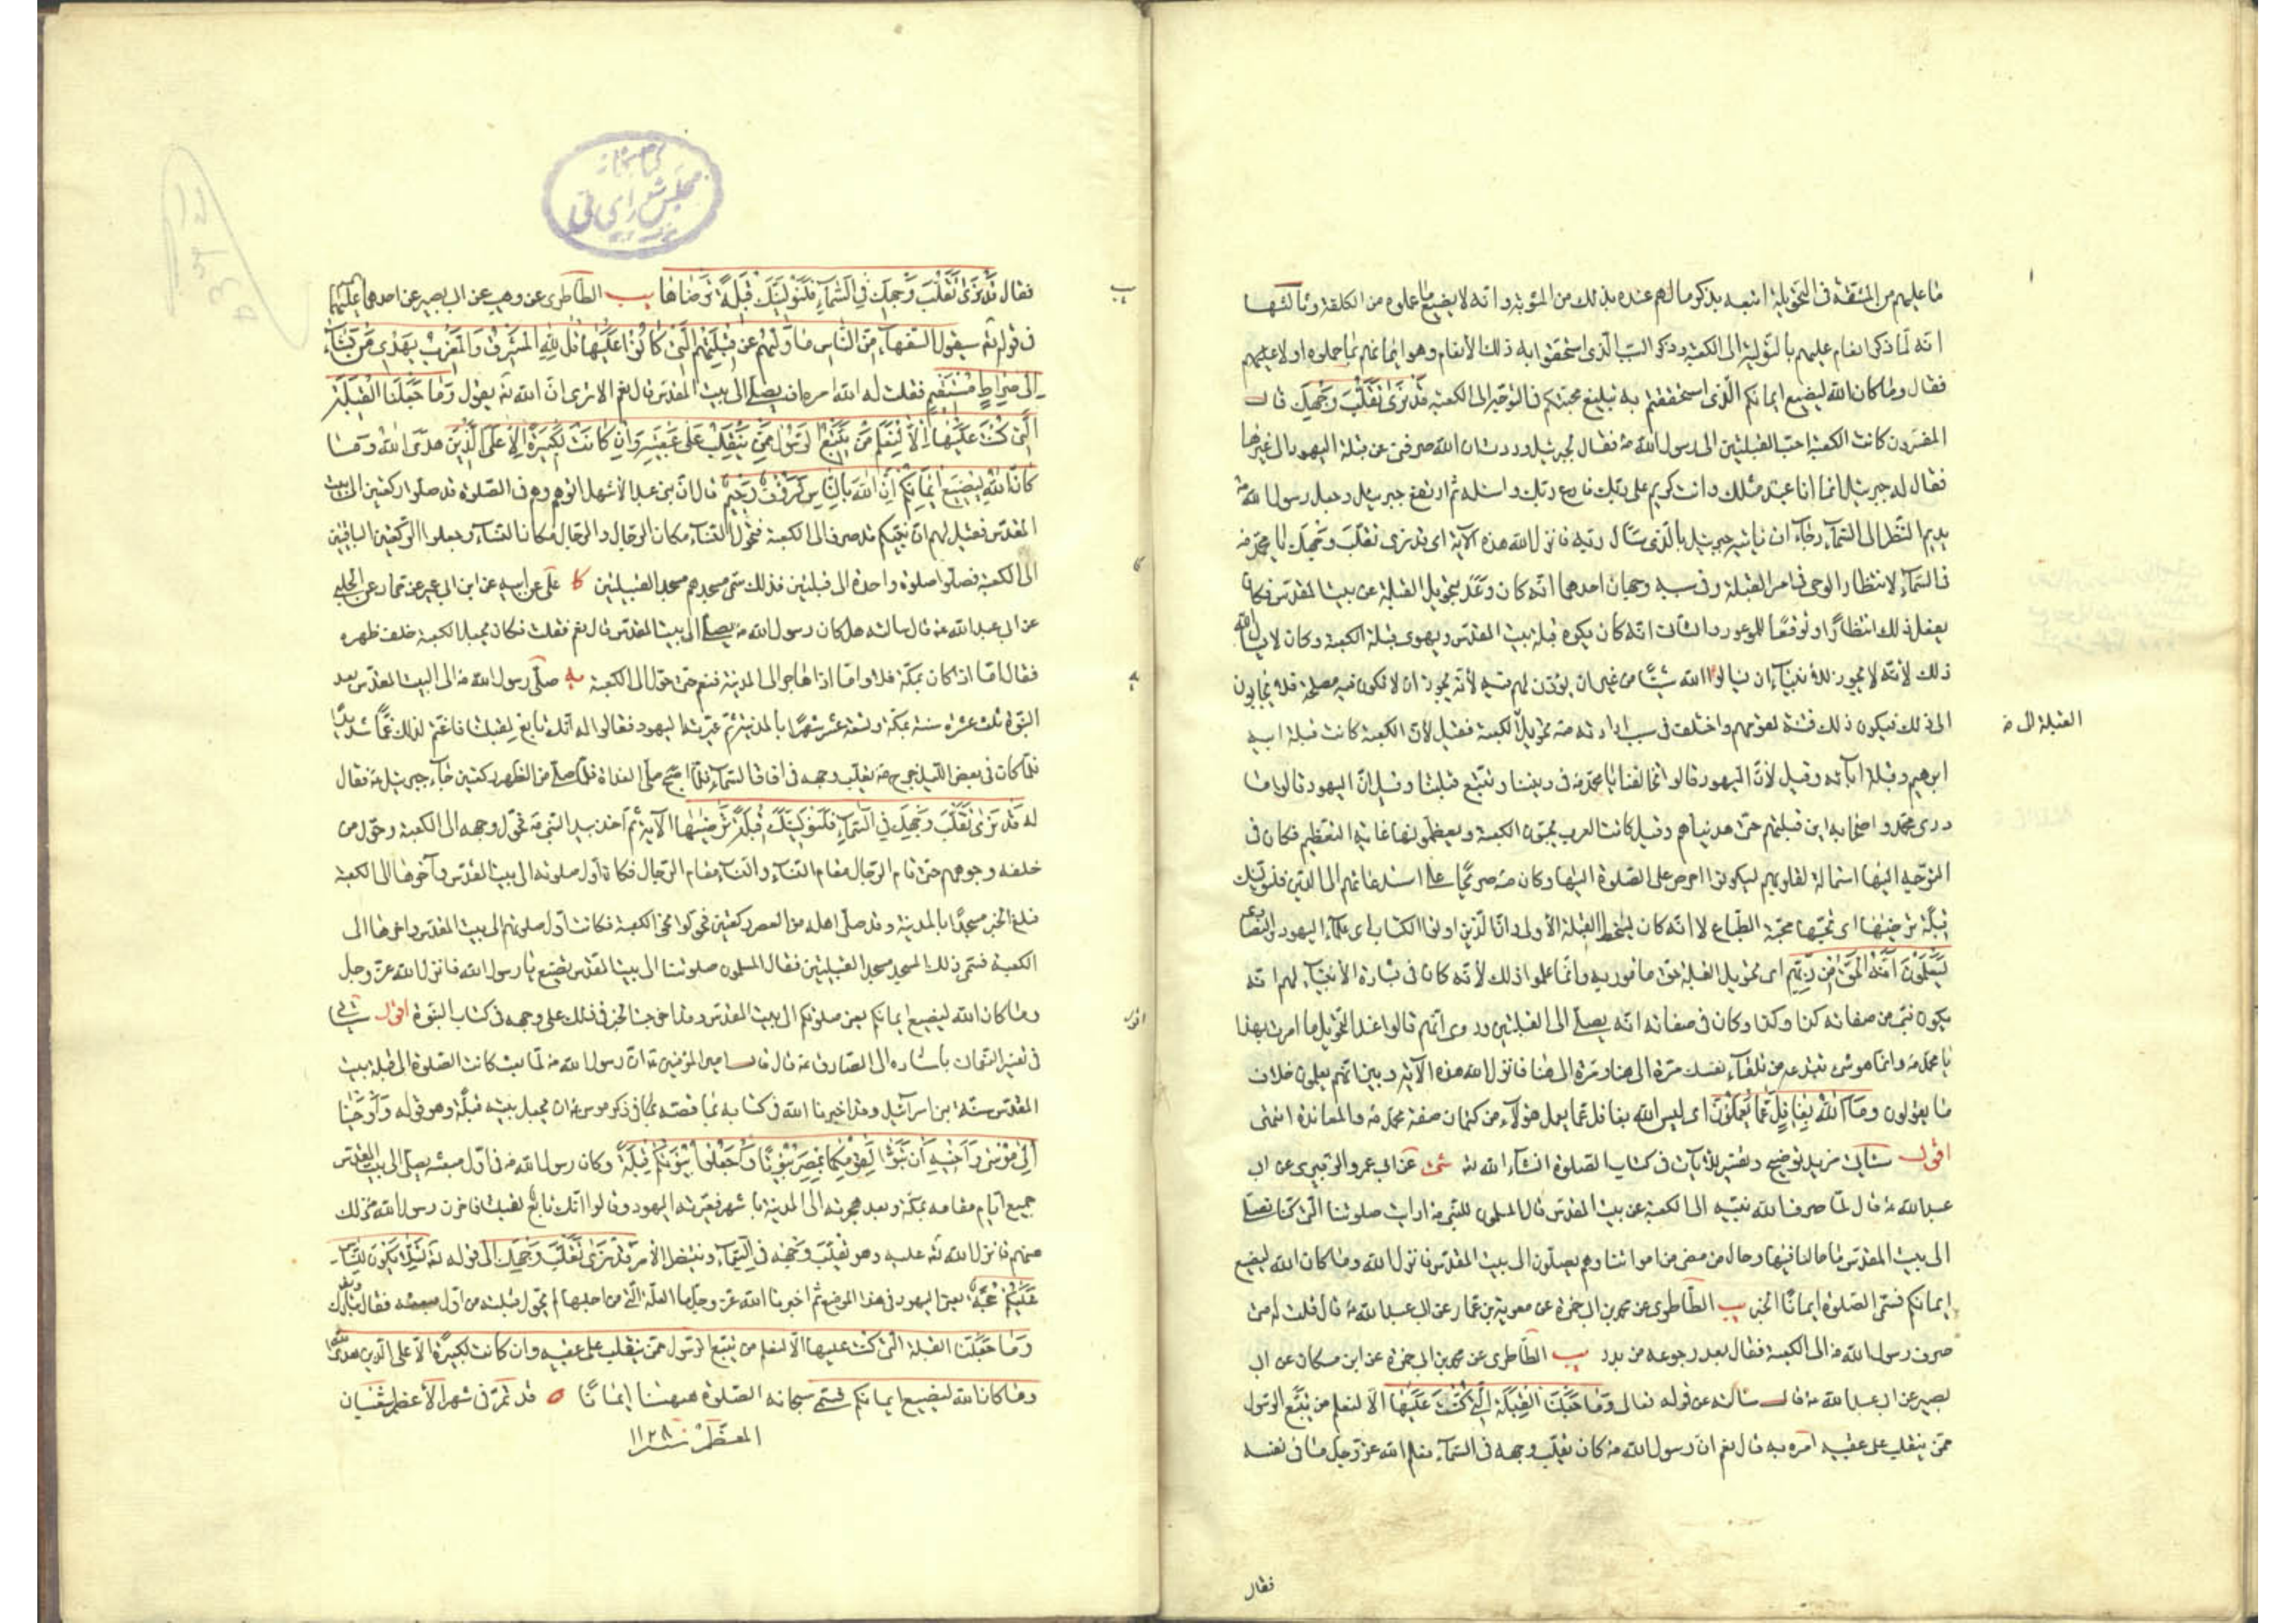 ما عليهم من المشقة في التحويلة اتبعه بذكر ما لهم عنده بذلك من المثوبة وانه لا يضيع ما عملوه من الكلفة وثالثها
انه لما ذكر انعامه عليهم بالتولية الى الكعبة وذكر السبب الذي استحقوا به ذلك الانعام وهو ايمانهم بما حملوه اولا عليهم
فقال وما كان الله ليضيع ايمانكم الذي استحققتم به تبليغ محبتكم في التوجه الى الكعبة قد نرى تقلب وجهك قال
المفسرون كانت الكعبة احب القبلتين الى رسول الله ص فقال لجبرئيل وددت ان الله صرفني عن قبلة اليهود الى غيرها
فقال له جبرئيل انما انا عبد مثلك وانت كريم على ربك فادع ربك واسئله ثم ارتفع جبرئيل وجعل رسول الله ص
يديم النظر الى السماء رجاء ان ياتيه جبرئيل بالذي سأل ربه فانزل الله هذه الآية اى قد نرى تقلب وجهك يا محمد ص
في السماء لانتظار الوحى في امر القبلة وفي سببه وجهان احدهما انه كان وعد بتحويل القبلة عن بيت المقدس فكان
يفعل ذلك انتظارا وتوقعا للموعود والثاني انه كان يكره قبلة بيت المقدس ويهوى قبلة الكعبة وكان لا يسأل الله
ذلك لأنه لا يجوز للأنبياء ان يسالوا الله شيئا من غير ان يؤذن لهم فيه لأنه يجوز ان لا تكون فيه مصلحة فلا يجابون
الى ذلك فيكون ذلك فتنة لقومهم واختلف في سبب ارادته ص تحويل الكعبة فقيل لأن الكعبة كانت قبلة ابيه
القبلة الى
ابرهيم وقبلة ابآئه وقيل لأن اليهود قالوا تخالفنا يا محمد ص في ديننا وتتبع قبلتنا وقيل ان اليهود قالوا ما
درى محمد واصحابه اين قبلتهم حتى هديناهم وقيل كانت العرب يحبون الكعبة ويعظمونها غاية التعظيم فكان في
التوجه اليها استمالة لقلوبهم ليكونوا احرص على الصلوة اليها وكان ص حريصا على استدعائهم الى الدين فلنولينك
قبلة ترضيها اى تحبها محبة الطباع لا انه كان يسخط القبلة الأولى وان الذين اوتوا الكتاب اى علماء اليهود والنصارى
ليعلمون انه الحق من ربهم اى تحويل القبلة حق مامور به وانما علموا ذلك لأنه كان في بشارة الأنبياء لهم انه
يكون نبي من صفاته كذا وكذا وكان في صفاته انه يصلي الى القبلتين وروى انهم قالوا عند التحويل ما امرت بهذا
يا محمد ص وانما هو شيء تبتدعه من تلقاء نفسك مرة الى هنا ومرة الى هنا فانزل الله هذه الآية وبين انهم يعلمون خلاف
ما يقولون وما الله بغافل عما يعملون اى ليس الله بغافل عما يعمل هؤلاء من كتمان صفة محمد ص والمعاندة انتهى
اقول سيأتي مزيد توضيح وتفسير للآيات في كتاب الصلوة انشاء الله تع شى عن ابي عمرو الزبيري عن ابي
عبد الله ع قال لما صرف الله نبيه الى الكعبة عن بيت المقدس قال المسلمون للنبي ص ارايت صلوتنا التي كنا نصلي
الى بيت المقدس ما حالنا فيها وحال من مضى من امواتنا وهم يصلون الى بيت المقدس فانزل الله وما كان الله ليضيع
ايمانكم فسمى الصلوة ايمانا الخبر يب الطاطرى عن محمد بن ابي حمزة عن معوية بن عمار عن ابي عبد الله ع قال قلت له متى
صرف رسول الله ص الى الكعبة فقال بعد رجوعه من بدر يب الطاطرى عن محمد بن ابي حمزة عن ابن مسكان عن ابي
بصير عن ابي عبد الله ع قال سألته عن قوله تعالى وما جعلنا القبلة التي كنت عليها الا لنعلم من يتبع الرسول
ممن ينقلب على عقبيه امره به قال نعم ان رسول الله ص كان يقلب وجهه في السماء فعلم الله عز وجل ما في نفسه
فقال
كتابخانه
مجلس شوراى ملى
فقال قد نرى تقلب وجهك في السماء فلنولينك قبلة ترضاها يب الطاطرى عن وهيب عن ابي بصير عن احدهما عليهما
في قوله تع سيقول السفهاء من الناس ما وليهم عن قبلتهم التي كانوا عليها قل لله المشرق والمغرب يهدى من يشاء
الى صراط مستقيم فقلت له الله امره ان يصلي الى بيت المقدس قال نعم الا ترى ان الله تع يقول وما جعلنا القبلة
التي كنت عليها الا لنعلم من يتبع الرسول ممن ينقلب على عقبيه وان كانت لكبيرة الا على الذين هدى الله وما
كان الله ليضيع ايمانكم ان الله بالناس لرؤف رحيم قال ان بني عبد الأشهل اتوهم وهم في الصلوة قد صلوا ركعتين الى بيت
المقدس فقيل لهم ان نبيكم قد صرف الى الكعبة فتحول النساء مكان الرجال والرجال مكان النساء وجعلوا الركعتين الباقيتين
الى الكعبة فصلوا صلوة واحدة الى قبلتين فلذلك سمى مسجدهم مسجد القبلتين كا على عن ابيه عن ابن ابي عمير عن حماد عن الحلبي
عن ابي عبد الله ع قال سالته هل كان رسول الله ص يصلي الى بيت المقدس قال نعم فقلت فكان يجعل الكعبة خلف ظهره
فقال اما اذا كان بمكة فلا واما اذا هاجر الى المدينة فنعم حتى حول الى الكعبة يه صلى رسول الله ص الى البيت المقدس بعد
النبوة ثلث عشرة سنة بمكة وتسعة عشر شهرا بالمدينة ثم عيرته اليهود فقالوا له انك تابع لقبلتنا فاغتم لذلك غما شديدا
فلما كان في بعض الليل خرج ص يقلب وجهه في افاق السماء فلما اصبح صلى الغداة فلما صلى من الظهر ركعتين جاء جبرئيل ع فقال
له قد نرى تقلب وجهك في السماء فلنولينك قبلة ترضيها الآية ثم اخذ بيد النبي ص فحول وجهه الى الكعبة وحول من
خلفه وجوههم حتى قام الرجال مقام النساء والنساء مقام الرجال فكان اول صلوته الى بيت المقدس وآخرها الى الكعبة
فبلغ الخبر مسجدا بالمدينة وقد صلى اهله من العصر ركعتين فحولوا نحو الكعبة فكانت اول صلوتهم الى بيت المقدس واخرها الى
الكعبة فسمى ذلك المسجد مسجد القبلتين فقال المسلمون صلوتنا الى بيت المقدس تضيع يا رسول الله فانزل الله عز وجل
وما كان الله ليضيع ايمانكم يعنى صلوتكم الى بيت المقدس وقد اخرجت الخبر في ذلك على وجهه في كتاب النبوة اقول سيأتي
في تفسير النعمان باسناده الى الصادق ع قال قال امير المؤمنين ع ان رسول الله ص لما بعث كانت الصلوة الى قبلة بيت
المقدس سنة بني اسرائيل وقد اخبرنا الله في كتابه بما قصه في ذكر موسى ع ان يجعل بيته قبلة وهو قوله واوحينا
الى موسى واخيه ان تبوءا لقومكما بمصر بيوتا واجعلوا بيوتكم قبلة وكان رسول الله ص في اول مبعثه يصلي الى بيت المقدس
جميع ايام مقامه بمكة وبعد هجرته الى المدينة باشهر فعيرته اليهود وقالوا انك تابع لقبلتنا فاحزن رسول الله ص ذلك
منهم فانزل الله تع عليه وهو يقلب وجهه في السماء وينتظر الأمر قد نرى تقلب وجهك الى قوله تع لئلا يكون للناس
عليكم حجة يعنى اليهود في هذا الموضع ثم اخبرنا الله عز وجل ما العلة التي من اجلها لم يحول قبلته من اول مبعثه فقال تبارك وتع
وما جعلنا القبلة التي كنت عليها الا لنعلم من يتبع الرسول ممن ينقلب على عقبيه وان كانت لكبيرة الا على الذين هدى الله
وما كان الله ليضيع ايمانكم فسمى سبحانه الصلوة ههنا ايمانا قد تم في شهر الأعظم شعبان
المعظم سنة ١١٢٨
يب
كا
يه
اقول